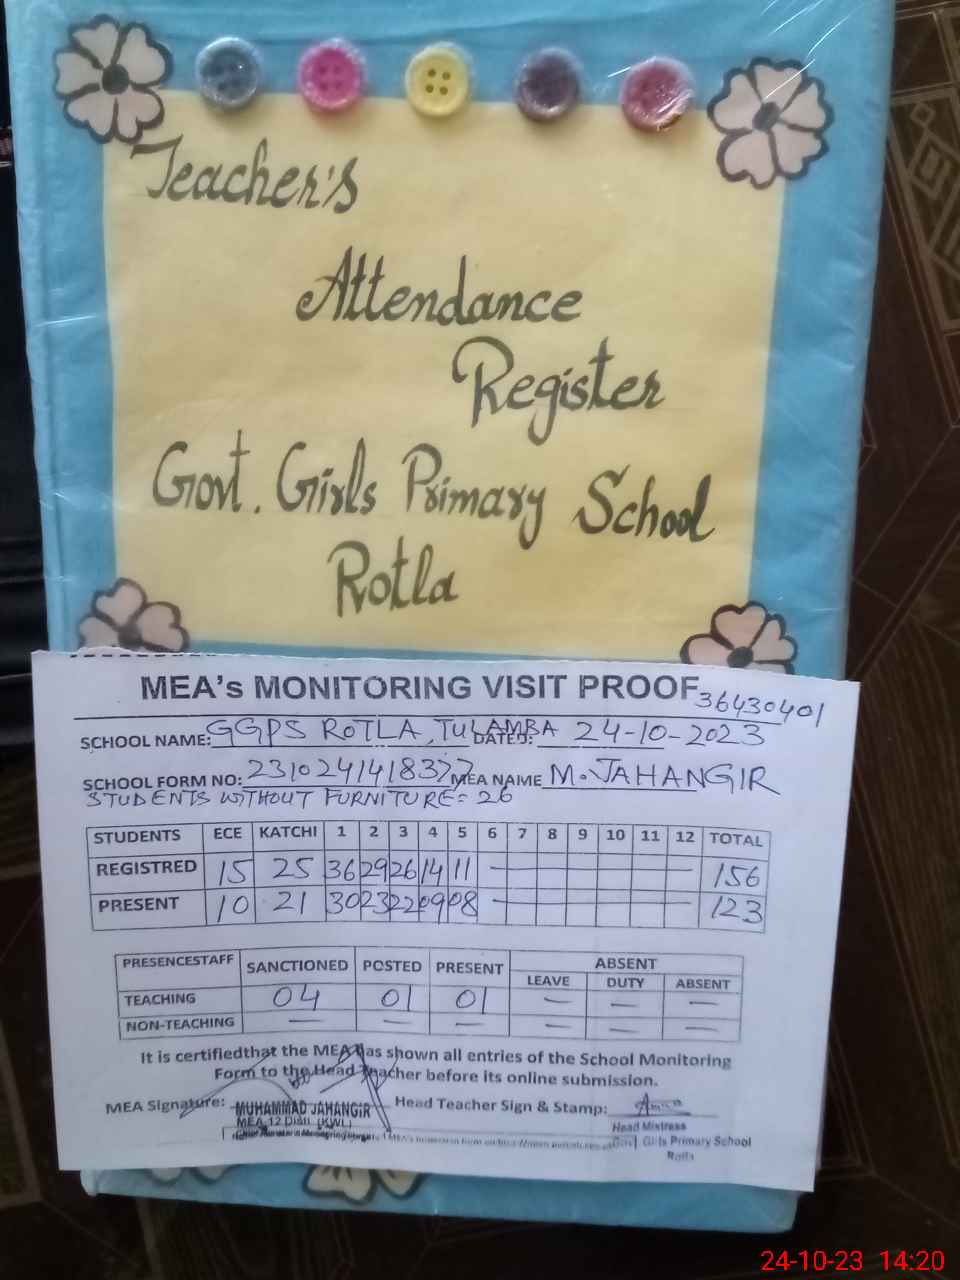 Teacher's
Attendance
Register
Govt. Girls Primary School
Rotla
MEA's MONITORING VISIT PROOF 36430401
SCHOOL NAME: GGPS ROTLA, TULAMBA DATED: 24-10-2023
SCHOOL FORM NO: 2310241418377 MEA NAME M. JAHANGIR
STUDENTS WITHOUT FURNITURE = 26
STUDENTS ECE KATCHI 1 2 3 4 5 6 7 8 9 10 11 12 TOTAL
REGISTRED 15 25 36 29 26 14 11 — 156
PRESENT 10 21 30 23 22 09 08 — 123
PRESENCESTAFF SANCTIONED POSTED PRESENT ABSENT
LEAVE DUTY ABSENT
TEACHING 04 01 01 — — —
NON-TEACHING — — — — — —
It is certifiedthat the MEA has shown all entries of the School Monitoring
Form to the Head Teacher before its online submission.
MEA Signature: MUHAMMAD JAHANGIR Head Teacher Sign & Stamp:
MEA 12 Distt. (KWL)
Head Mistress
Govt Girls Primary School
Rotla
24-10-23 14:20